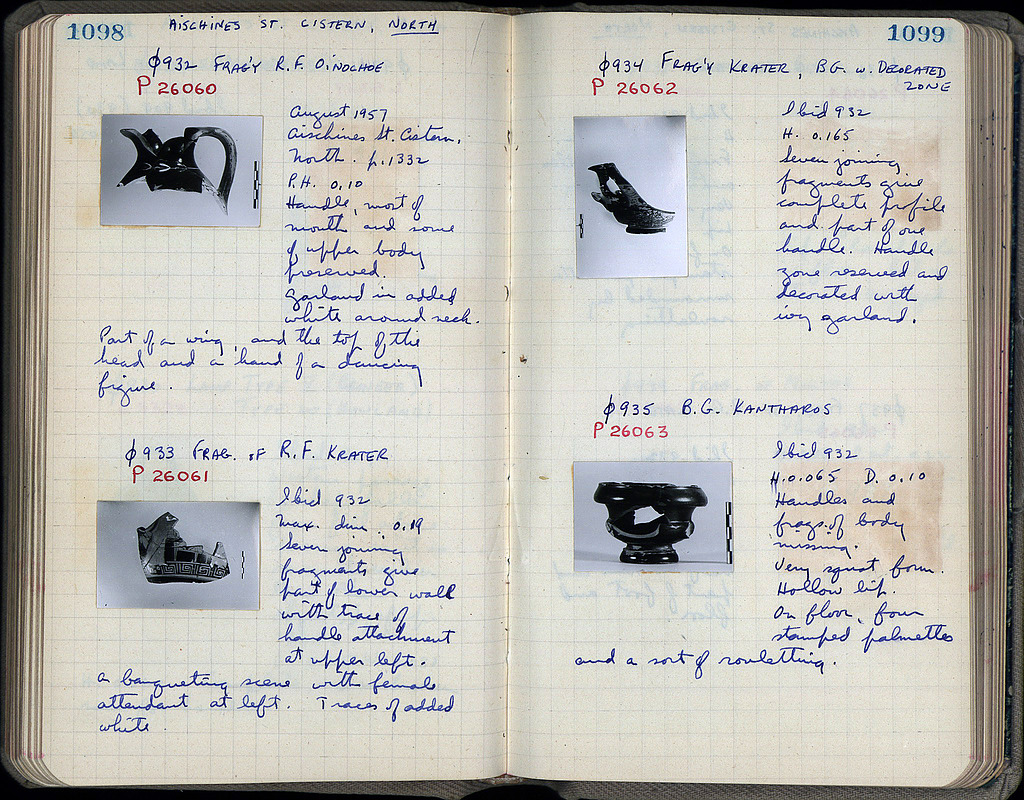 1098
AISCHINES ST. CISTERN, NORTH
φ932 FRAG'Y R.F. OINOCHOE
P 26060
August 1957
Aischines St. Cistern,
North. p.1332
P.H. 0.10
Handle, most of
mouth and some
of upper body
preserved.
Garland in added
white around neck.
Part of a wing, and the top of the
head and a hand of a dancing
figure.
φ933 FRAG. OF R.F. KRATER
P 26061
Ibid 932
Max. dim. 0.19
Seven joining
fragments give
part of lower wall
with trace of
handle attachment
at upper left.
A banqueting scene with female
attendant at left. Traces of added
white.
1099
φ934 FRAG'Y KRATER, B.G. w. DECORATED
ZONE
P 26062
Ibid 932
H. 0.165
Seven joining
fragments give
complete profile
and part of one
handle. Handle
zone reserved and
decorated with
ivy garland.
φ935 B.G. KANTHAROS
P 26063
Ibid 932
H. 0.065 D. 0.10
Handles and
frags. of body
missing.
Very squat form.
Hollow lip.
On floor, four
stamped palmettes
and a sort of rouletting.